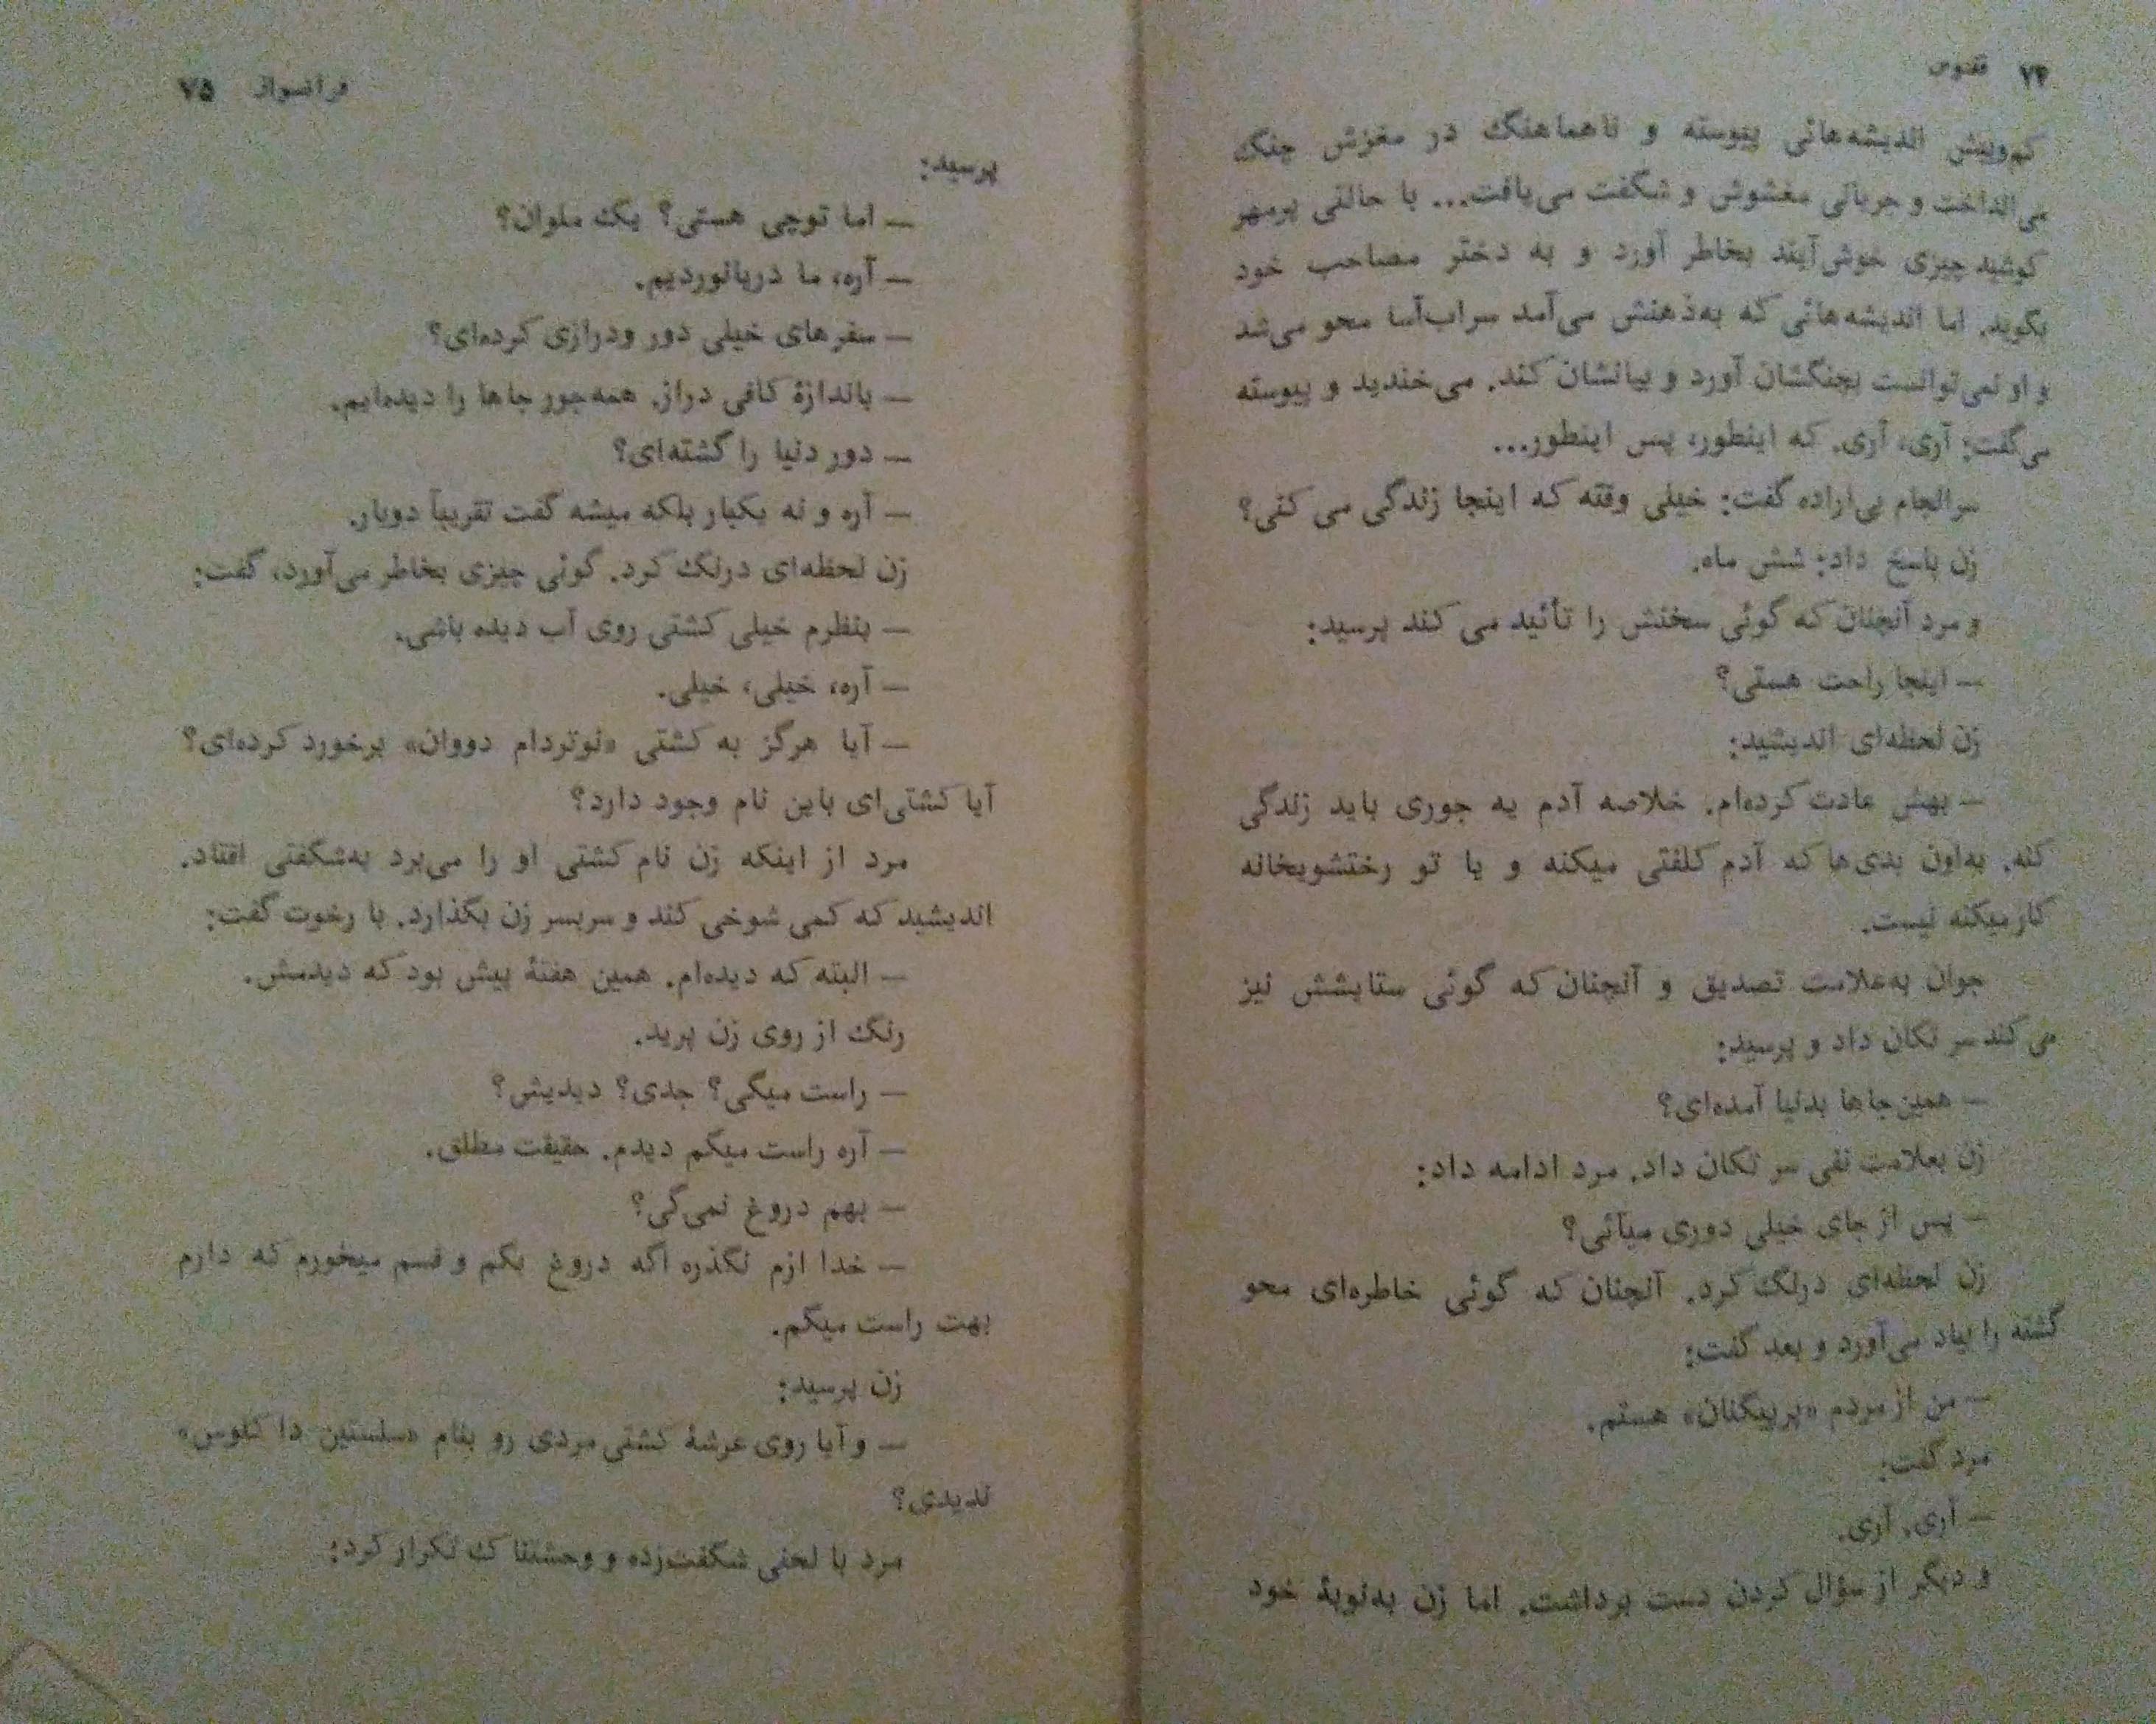 ۷۴ ققنوس
کم‌وبیش اندیشه‌هائی پیوسته و ناهماهنگ در مغزش چنگ
می‌انداخت و جریانی مغشوش و شگفت می‌یافت... با حالتی پرمهر
کوشید چیزی خوش‌آیند بخاطر آورد و به دختر مصاحب خود
بگوید. اما اندیشه‌هائی که به‌ذهنش می‌آمد سراب‌آسا محو می‌شد
و او نمی‌توانست بچنگشان آورد و بیانشان کند. می‌خندید و پیوسته
می‌گفت: آری، آری. که اینطور، پس اینطور...
سرانجام بی‌اراده گفت: خیلی وقته که اینجا زندگی می کنی؟
زن پاسخ داد: شش ماه.
و مرد آنچنان که گوئی سخنش را تأئید می کند پرسید:
— اینجا راحت هستی؟
زن لحظه‌ای اندیشید:
— بهش عادت کرده‌ام. خلاصه آدم یه جوری باید زندگی
کنه. به‌اون بدی‌ها که آدم کلفتی میکنه و یا تو رختشویخانه
کار میکنه نیست.
جوان به‌علامت تصدیق و آنچنان که گوئی ستایشش نیز
می کند سر تکان داد و پرسید:
— همین‌جاها بدنیا آمده‌ای؟
زن بعلامت نفی سر تکان داد. مرد ادامه داد:
— پس از جای خیلی دوری میآئی؟
زن لحظه‌ای درنگ کرد. آنچنان که گوئی خاطره‌ای محو
گشته را بیاد می‌آورد و بعد گفت:
— من از مردم «پرپیگنان» هستم.
مرد گفت:
— آری، آری.
و دیگر از سؤال کردن دست برداشت. اما زن به‌نوبهٔ خود
فرانسواز ۷۵
پرسید:
— اما توچی هستی؟ یک ملوان؟
— آره، ما دریانوردیم.
— سفرهای خیلی دور ودرازی کرده‌ای؟
— باندازهٔ کافی دراز. همه‌جور جاها را دیده‌ایم.
— دور دنیا را گشته‌ای؟
— آره و نه یکبار بلکه میشه گفت تقریباً دوبار.
زن لحظه‌ای درنگ کرد. گوئی چیزی بخاطر می‌آورد، گفت:
— بنظرم خیلی کشتی روی آب دیده باشی.
— آره، خیلی، خیلی.
— آیا هرگز به کشتی «نوتردام دووان» برخورد کرده‌ای؟
آیا کشتی‌ای باین نام وجود دارد؟
مرد از اینکه زن نام کشتی او را می‌برد به‌شگفتی افتاد.
اندیشید که کمی شوخی کند و سربسر زن بگذارد. با رخوت گفت:
— البته که دیده‌ام. همین هفتهٔ پیش بود که دیدمش.
رنگ از روی زن پرید.
— راست میگی؟ جدی؟ دیدیش؟
— آره راست میگم دیدم. حقیقت مطلق.
— بهم دروغ نمی‌گی؟
— خدا ازم نگذره اگه دروغ بگم و قسم میخورم که دارم
بهت راست میگم.
زن پرسید:
— و آیا روی عرشهٔ کشتی مردی رو بنام «سلستین دا کلوس»
ندیدی؟
مرد با لحنی شگفت‌زده و وحشتناک تکرار کرد: